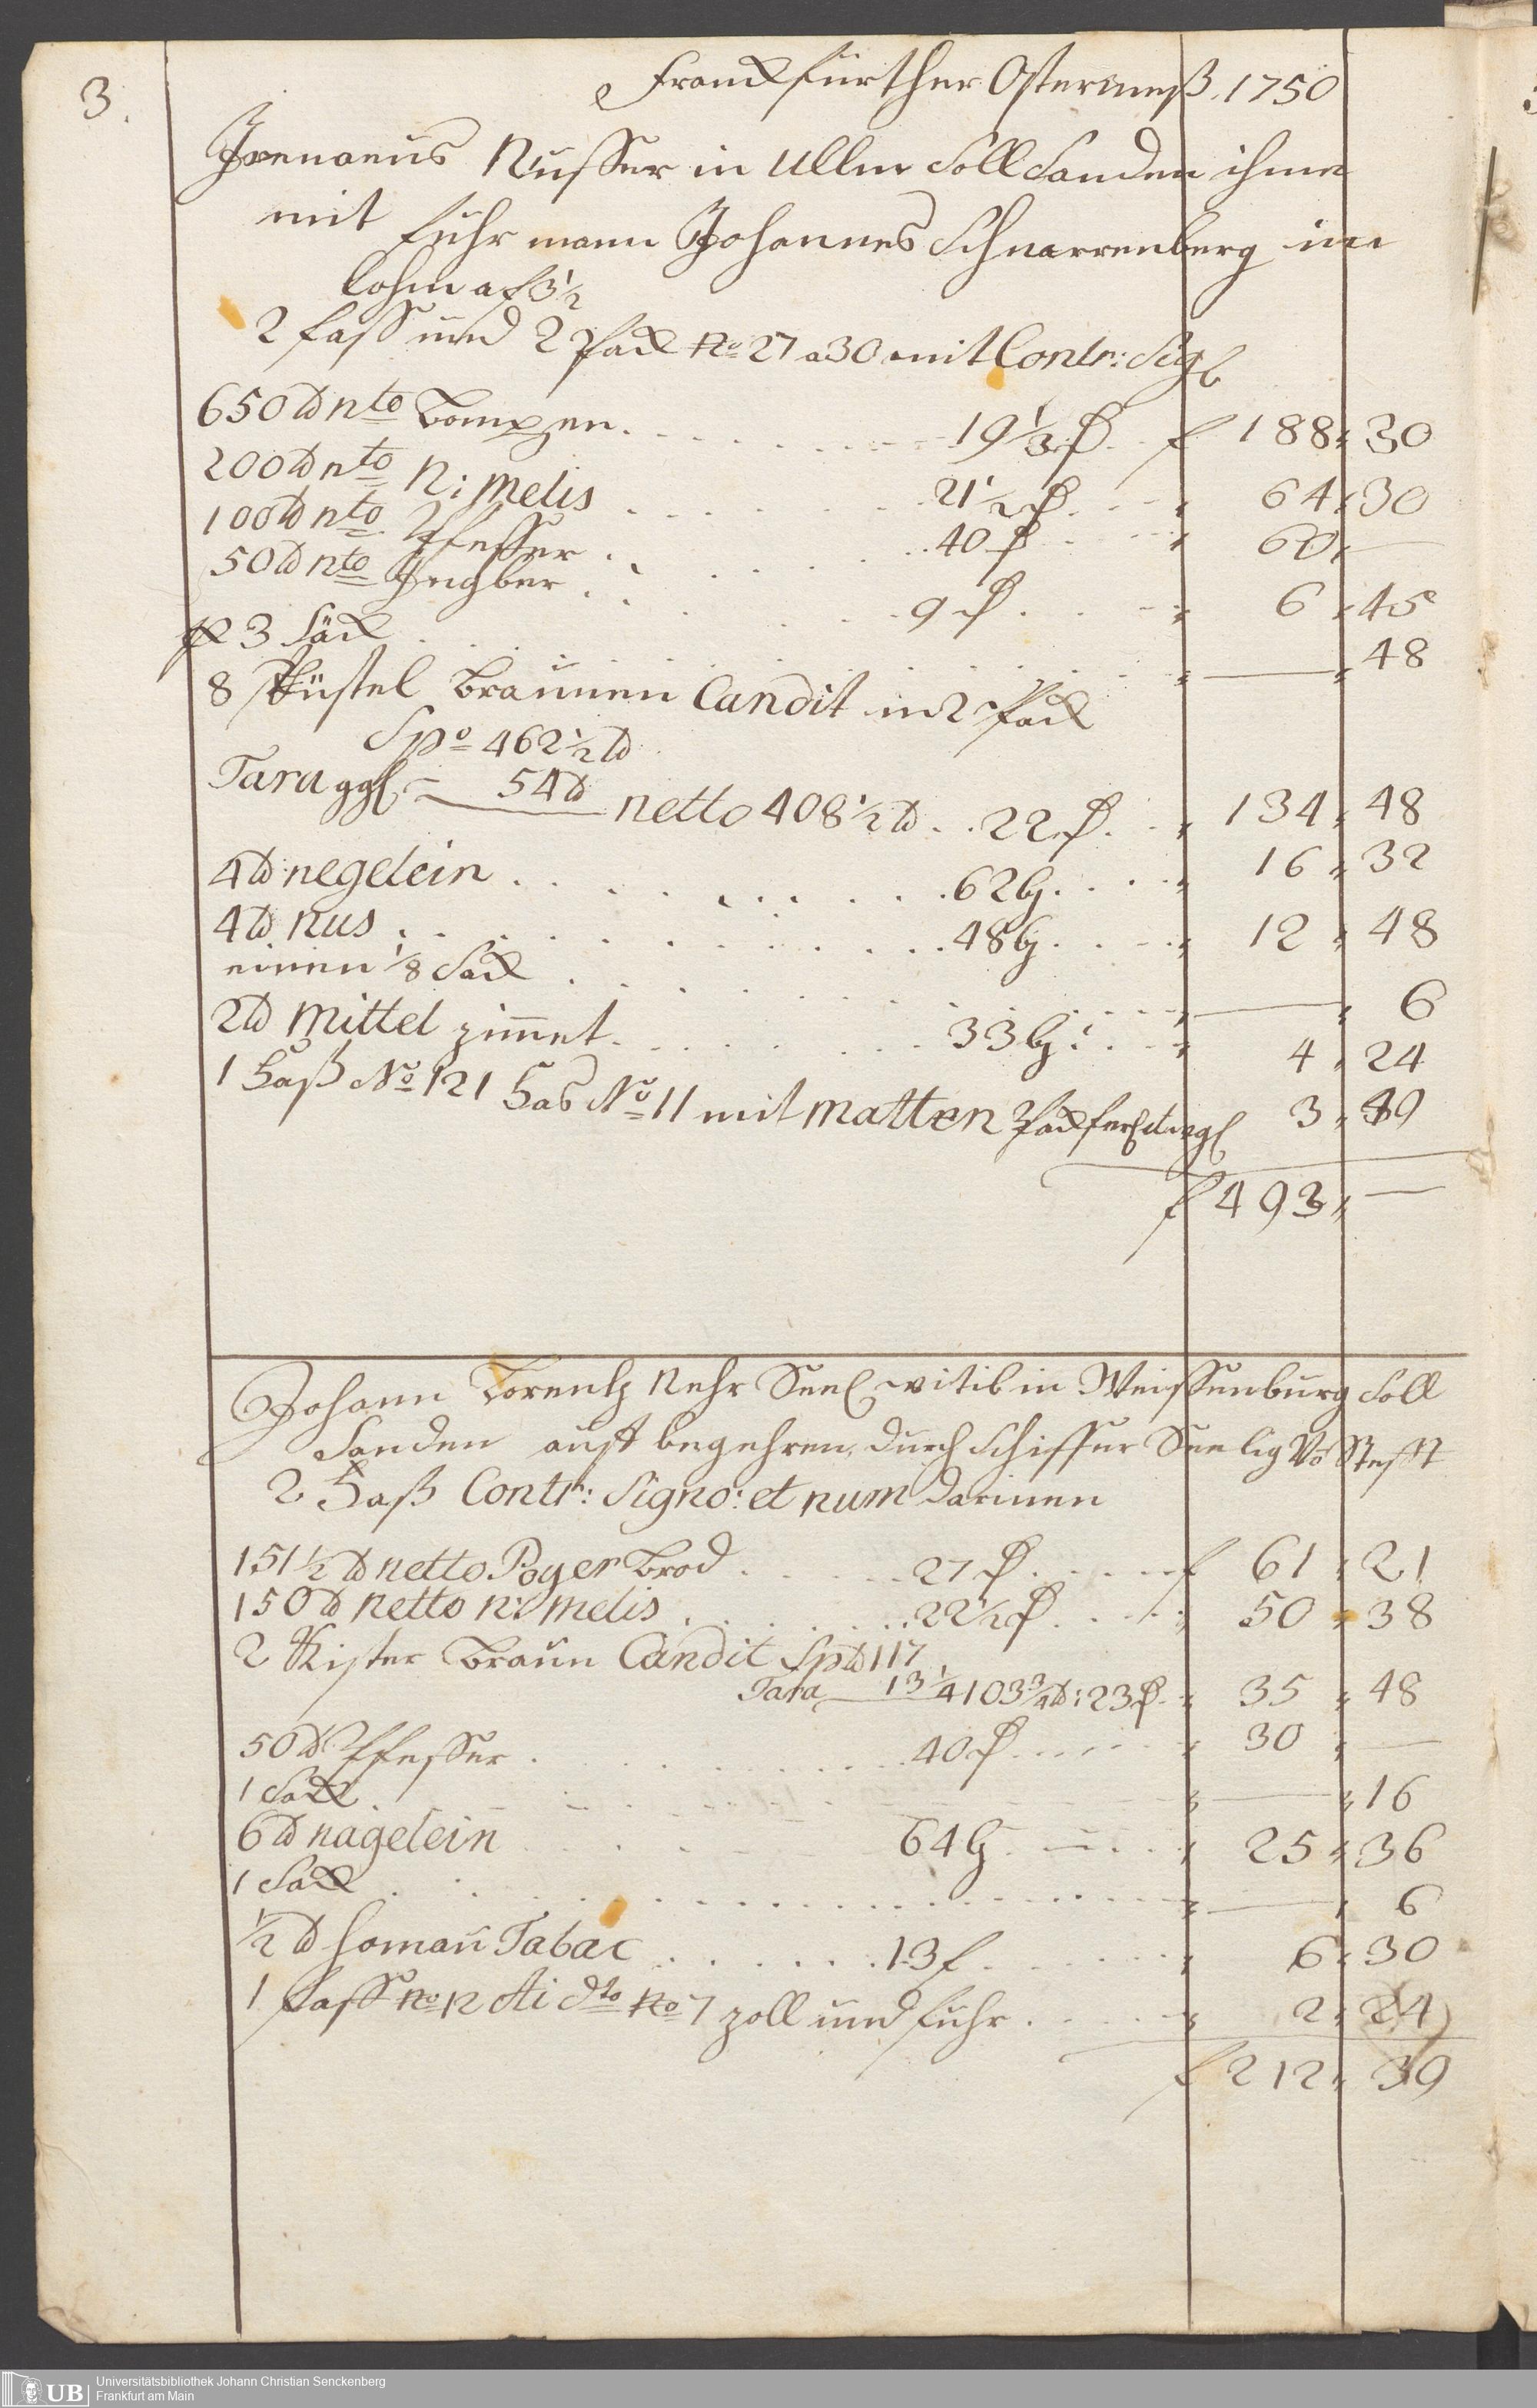 3.
Franckfürther Ostermeß. 1750
Irenaeus Nusser in Ullm Soll Sanden ihme
mit fuhrmann Johannes Schnarrenberg im
lohn a f 3½
2 fass und 2 Pack No 27 a 30 mit Contr: Sig
650 ℔ nto Lompen 19⅓ f 188 30
200 ℔ nto N: Melis 21½ 64 30
100 ℔ nto Pfeffer 40 60 —
50 ℔ nto Ingber 9 6 45
3 Säck — 48
8 Küstel Braunen Candit in 2 Pack
Spo 462½ ℔
Tara 54 ℔ netto 408½ ℔ 22 134 48
4 ℔ negelein 62 16 32
4 ℔ Nus 48 12 48
einen ⅛ Sack — 6
2 ℔ Mittel zimet 33 4 24
1 Faß No 12 1 Fas No 11 mit Matten 3 49
f 493 —
Johann Lorentz Nehr Seel witib in Weissenburg Soll
Sanden auff begehren durch Schiffer Seelig Vo Stefft
2 Faß Contr: Signo: et num darinnen
151½ ℔ netto Poyer Brod 27 f 61 21
150 ℔ netto N: Melis 22½ 50 38
2 Kister Braun Candit Sp ℔ 117
Tara 13¼ 103¾ ℔: 23 35 48
50 ℔ Pfeffer 40 30 —
1 Sack — 16
6 ℔ nagelein 64 25 36
1 Sack — 6
½ ℔ Tabac 13 f 6 30
1 fass No 12 dto No 7 zoll und fuhr 2 24
f 212 39
UB Universitätsbibliothek Johann Christian Senckenberg
Frankfurt am Main